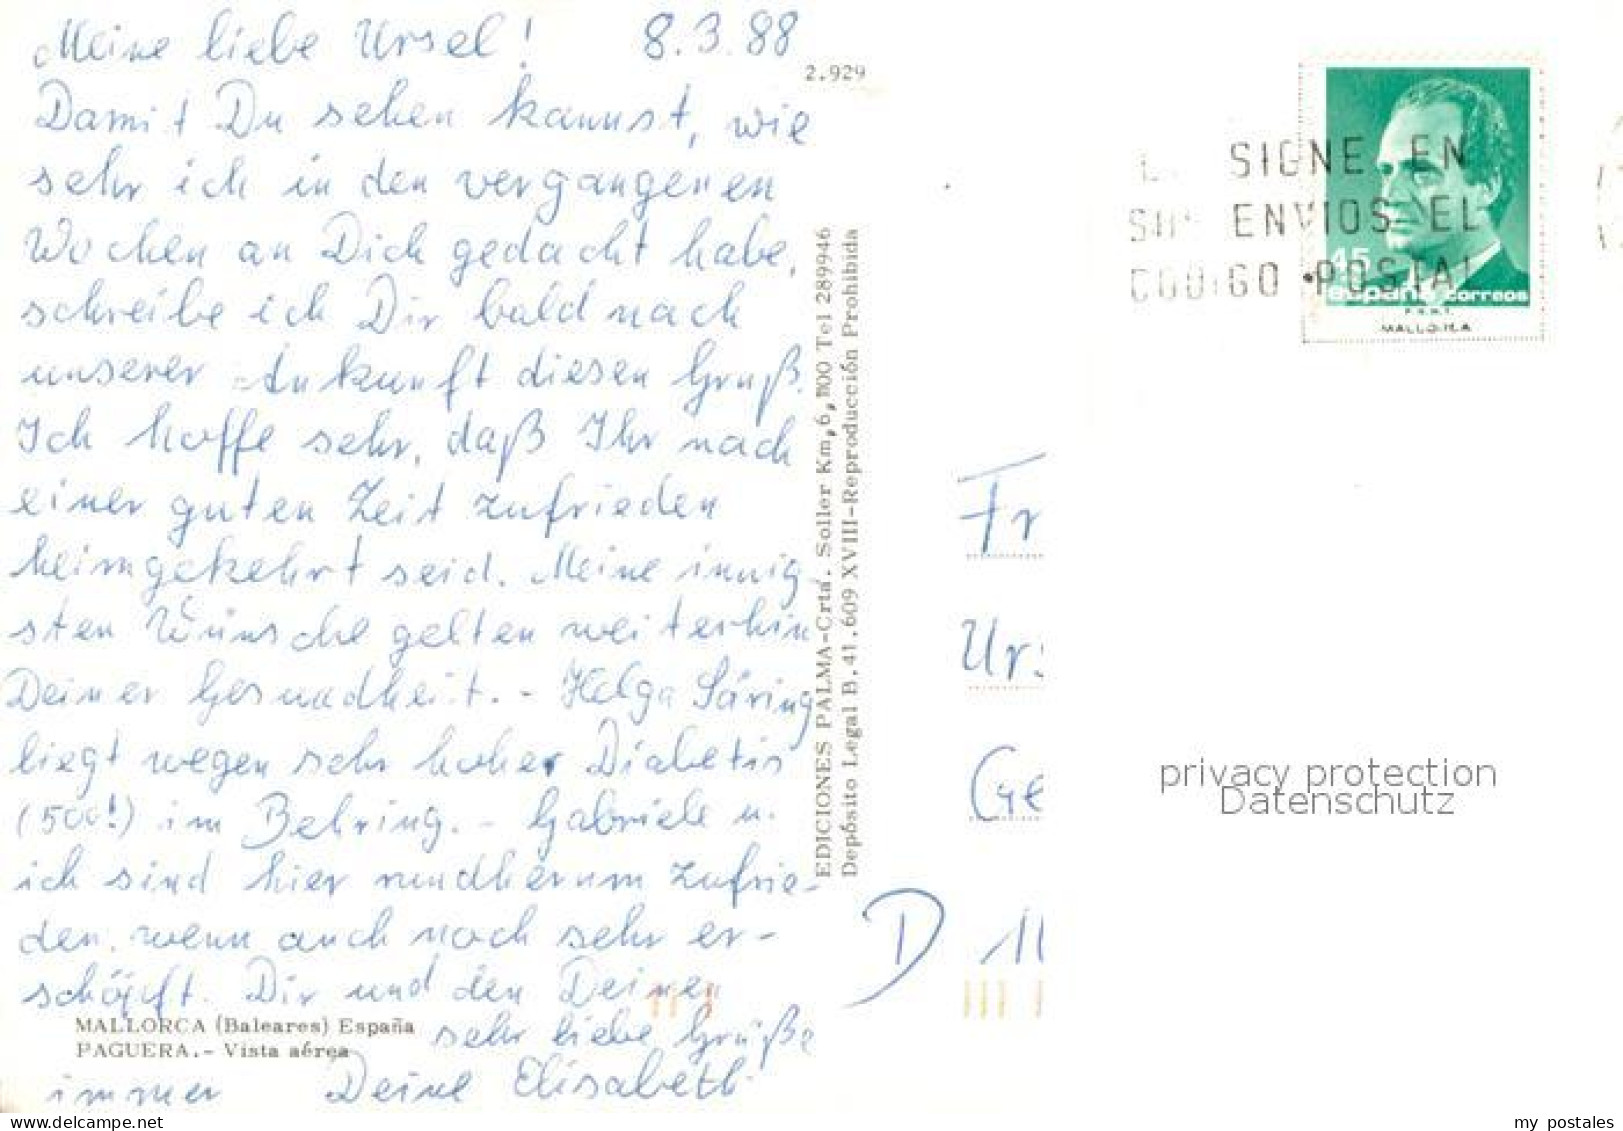 Meine liebe Ursel! 8.3.88
2.929
Damit Du sehen kannst, wie
sehr ich in den vergangenen
Wochen an Dich gedacht habe,
schreibe ich Dir bald nach
unserer Ankunft diesen Gruß.
Ich hoffe sehr, daß Ihr nach
einer guten Zeit zufrieden
heimgekehrt seid. Meine innig-
sten Wünsche gelten weiterhin
Deiner Gesundheit. - Helga Säring
liegt wegen sehr hoher Diabetis
(500!) im Behring. - Gabriele u.
ich sind hier rundherum zufrie-
den, wenn auch noch sehr er-
schöpft. Dir und den Deinen
sehr liebe Grüße
immer Deine Elisabeth
MALLORCA (Baleares) España
PAGUERA.- Vista aérea
EDICIONES PALMA-Crtá. Soller Km,6,1100 Tel 289946
Depósito Legal B. 41.609 XVIII-Reproducción Prohibida
SIGNE EN
ENVIOS EL
CODIGO POSTAL
45
españa correos
F.N.M.T.
MALLORCA
Fr
Urs
Ge
D 11
privacy protection
Datenschutz
my postales